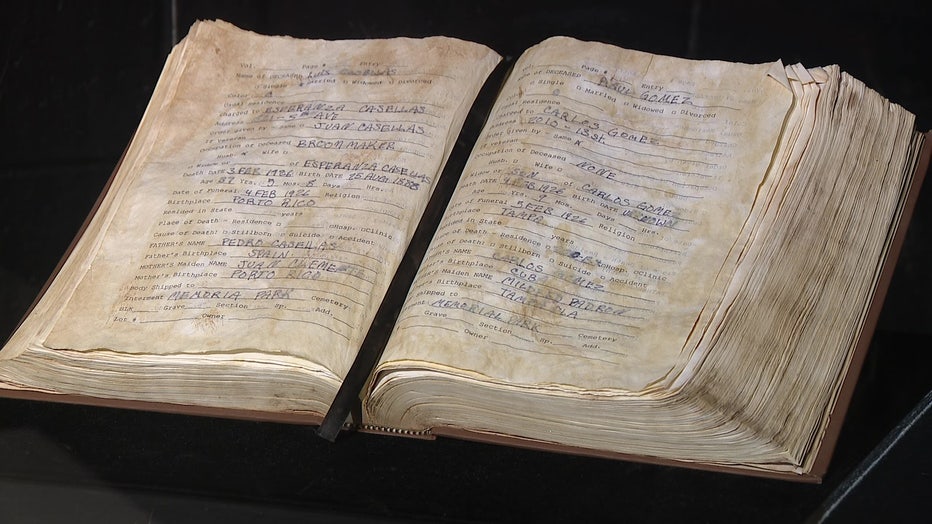 Vol. Page # Entry
Name of DECEASED LUIS CASELLAS
Single Married Widowed Divorced
Color
Usual Residence
Charged to ESPERANZA CASELLAS
Address 5th AVE
Order given by Same JUAN CASELLAS
If Veteran
Occupation of Deceased BROOMMAKER
Husb. Wife
Widow or of ESPERANZA CASELLAS
Death DATE 3 FEB 1926 Birth DATE 25 AUG 1888
Age 37 Yrs. 5 Mos. 8 Days Hrs.
Date of Funeral 4 FEB 1926 Religion
Birthplace PORTO RICO
Resided in State years
Place of Death: Residence Hosp. Clinic
Cause of Death: Stillborn Suicide Accident
FATHER'S NAME PEDRO CASELLAS
Father's Birthplace SPAIN
MOTHER'S Maiden NAME JUAN CLEMENTE
Mother's Birthplace PORTO RICO
Body Shipped to
Interment MEMORIA PARK Cemetery
Blk Grave Section Sp. Add.
Lot # Owner
Vol. Page # Entry
Name of DECEASED GOMEZ
Single Married Widowed Divorced
Residence
Charged to CARLOS GOMEZ
Address 2015-13st.
given by Same
If Veteran
Occupation of Deceased NONE
Husb. Wife
Widow or of CARLOS GOMEZ
DATE 1926 Birth DATE UNKNOWN
Mos. Days Hrs.
Date of Funeral 5 FEB 1926 Religion
Birthplace TAMPA
Resided in State years
Place of Death: Residence Hosp. Clinic
Cause of Death: Stillborn Suicide Accident
FATHER'S NAME CARLOS GOMEZ
Birthplace CUB
Maiden NAME PADRON
Birthplace TAMPA FLA
Shipped to
MEMORIAL PARK Cemetery
Grave Section Sp. Add.
Owner